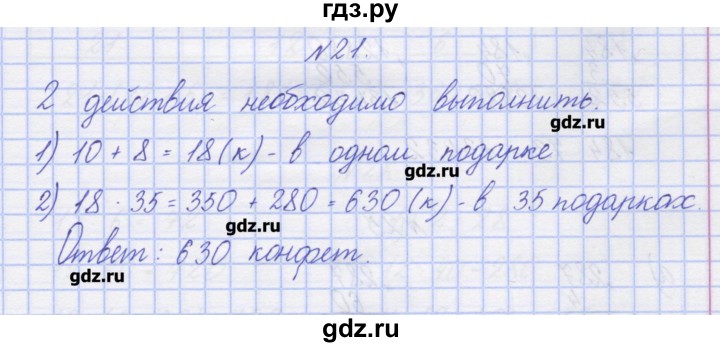 гдз.ру
№21.
2 действия необходимо выполнить.
gdz.ru
1) 10 + 8 = 18 (к) - в одном подарке
gdz.ru
2) 18 · 35 = 350 + 280 = 630 (к) - в 35 подарках.
gdz.ru
Ответ: 630 конфет.
gdz.ru
gdz.ru